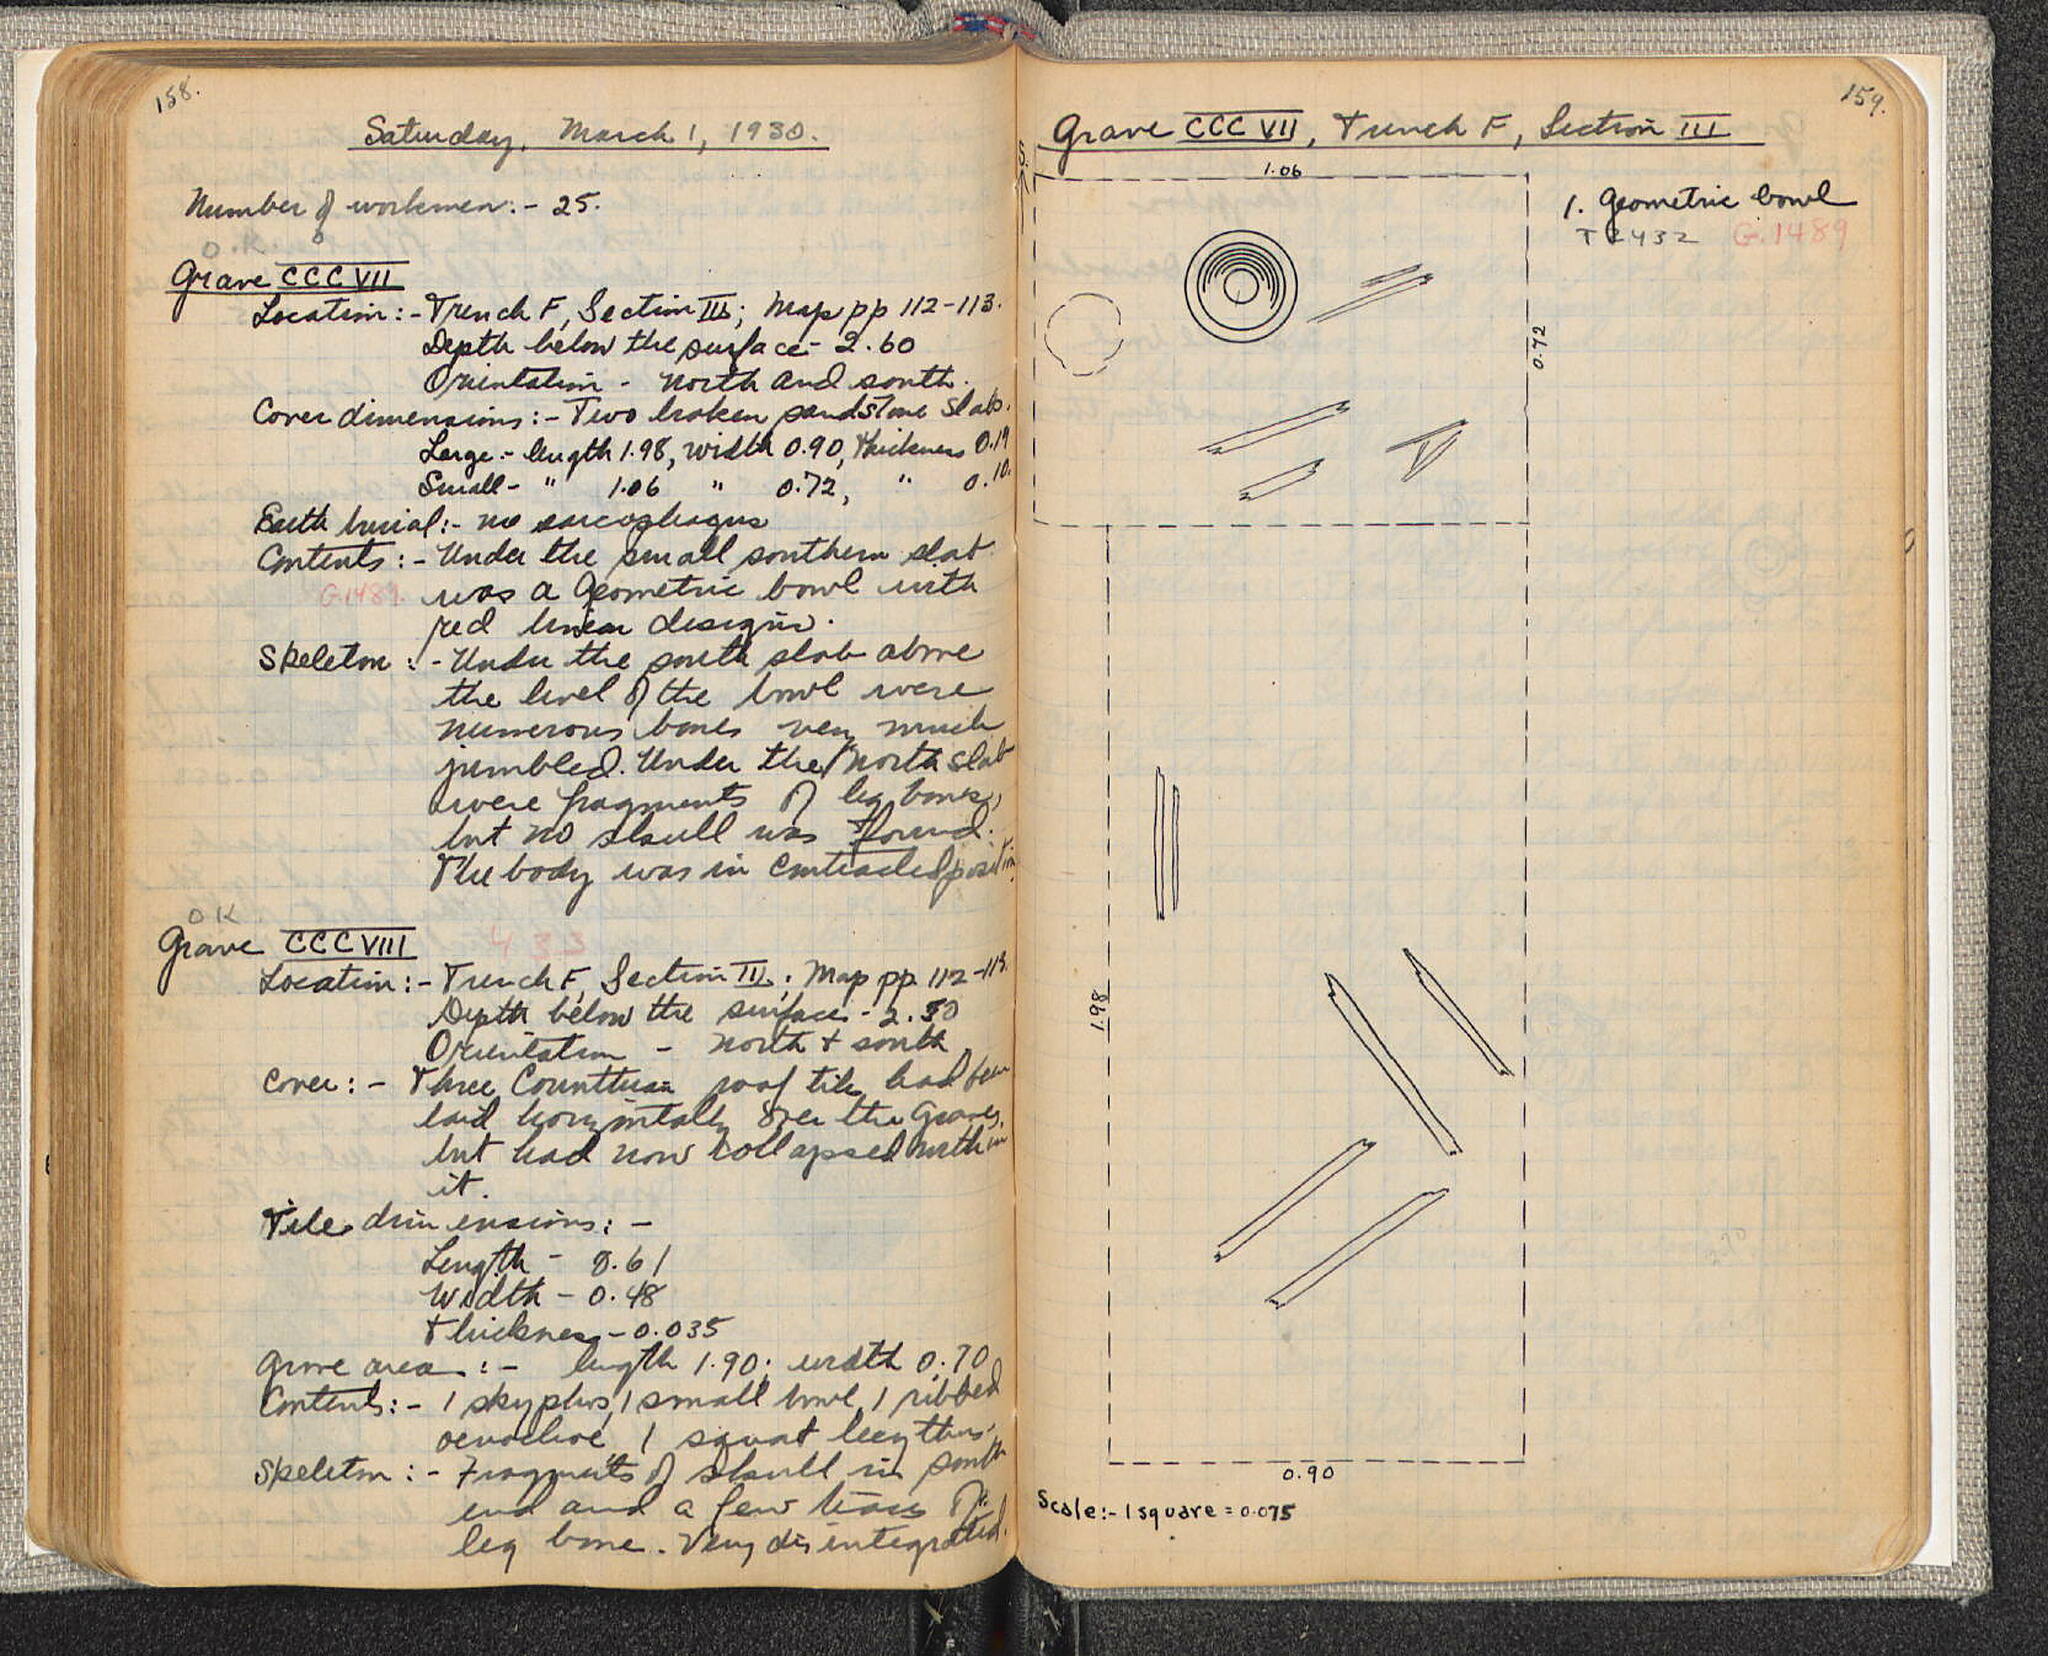 158.
Saturday, March 1, 1930.
Number of workmen:- 25.
O.K.
Grave CCCVII
Location:- Trench F, Section III; Map pp 112-113.
Depth below the surface - 2.60
Orientation - North and south.
Cover dimensions:- Two broken sandstone slabs.
Large - length 1.98, width 0.90, thickness 0.19
Small - " 1.06 " 0.72, " 0.10.
Earth burial:- no sarcophagus
Contents:- Under the small southern slab
G.1489. was a Geometric bowl with
red linear designs.
Skeleton:- Under the south slab above
the level of the bowl were
numerous bones very much
jumbled. Under the North slab
were fragments of leg bones,
but no skull was found.
The body was in contracted position
OK.
Grave CCCVIII 433
Location:- Trench F, Section III; Map pp. 112-113.
Depth below the surface - 2.50
Orientation - North + south
Cover:- Three Corinthian roof tiles had been
laid horizontally over the grave,
but had now collapsed within
it.
Tile dimensions:-
Length - 0.61
Width - 0.48
Thickness - 0.035
Grave area:- length 1.90; width 0.70
Contents:- 1 skyphos, 1 small bowl, 1 ribbed
oenochoe, 1 squat lecythus.
Skeleton:- Fragments of skull in south
end and a few traces of
leg bone. Very disintegrated.
159.
Grave CCCVII, Trench F, Section III
S.
1.06
1. Geometric bowl
T 2432 G.1489
0.72
1.98
0.90
Scale:- 1 square = 0.075